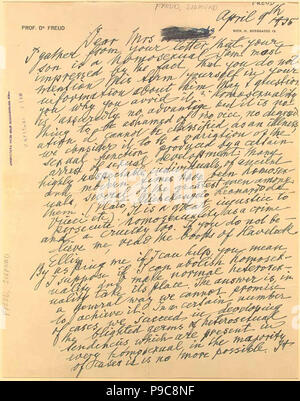 FREUD, SIGMUND
FREUD
April 9th 1935
PROF. DR FREUD
WIEN, IX., BERGGASSE 19.
Dear Mrs
I gather from your letter that your
son is a homosexual. I am most
impressed by the fact that you do not
mention this term yourself in your
information about him. May I question
you why you avoid it? Homosexuality
is assuredly no advantage but it is
nothing to be ashamed of, no vice, no degradation,
it cannot be classified as an illness
we consider it to be a variation of the
sexual function produced by a certain
arrest of sexual development. Many
highly respectable individuals of
ancient and modern times have been homosexuals,
several of the greatest men among
them
It is a great injustice to
persecute homosexuality as a crime
and a cruelty too. If you do not
believe me, read the books of Havelock
Ellis.
By asking me if I can help, you mean
I suppose if I can abolish homosexuality
and make normal heterosexuality
take its place. The answer is, in
a general way, we cannot promise
to achieve it. In a certain number
of cases we succeed in developing
the blighted germs of heterosexual
tendencies which are present in
every homosexual, in the majority
of cases it is no more possible. It
FREUD, SIGMUND
alamy
Image ID: P9C8NF
www.alamy.com